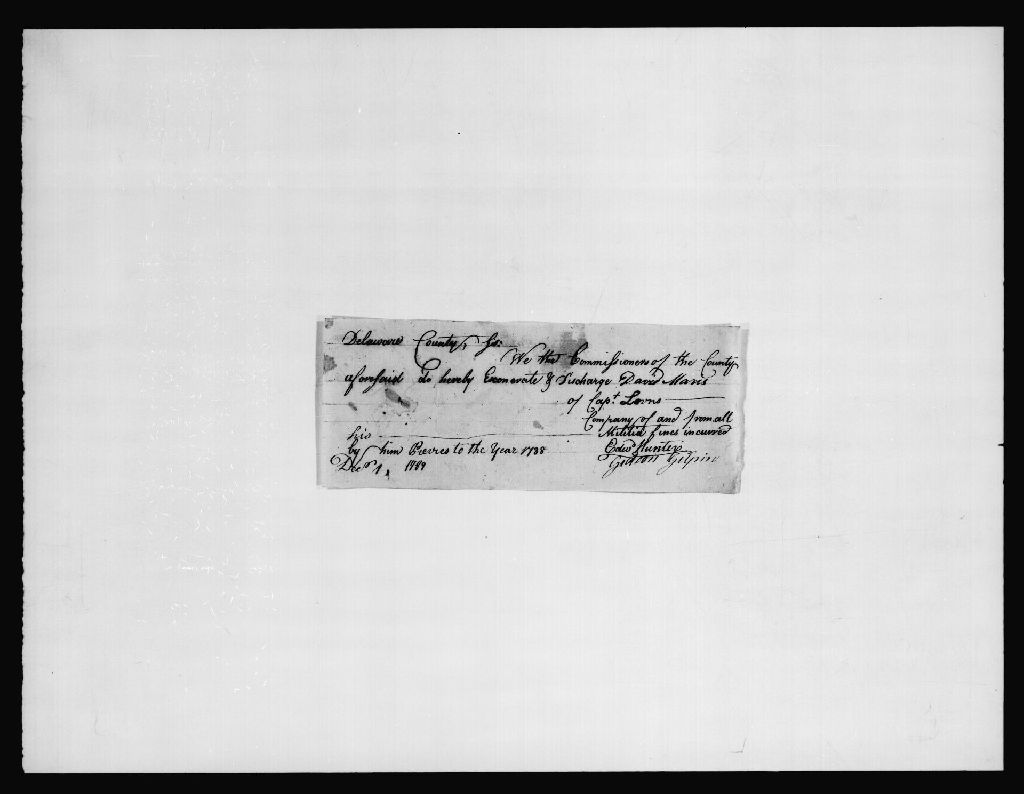 Delaware County, Ss.
We the Commissioners of the County
aforesaid do hereby Exonerate & Discharge David Maris
of Capt. Levns
Company of and from all
his Militia fines incurred
by him Previes to the Year 1788
Decr 1, 1789 Edwd Hunter
Gideon Gilpin